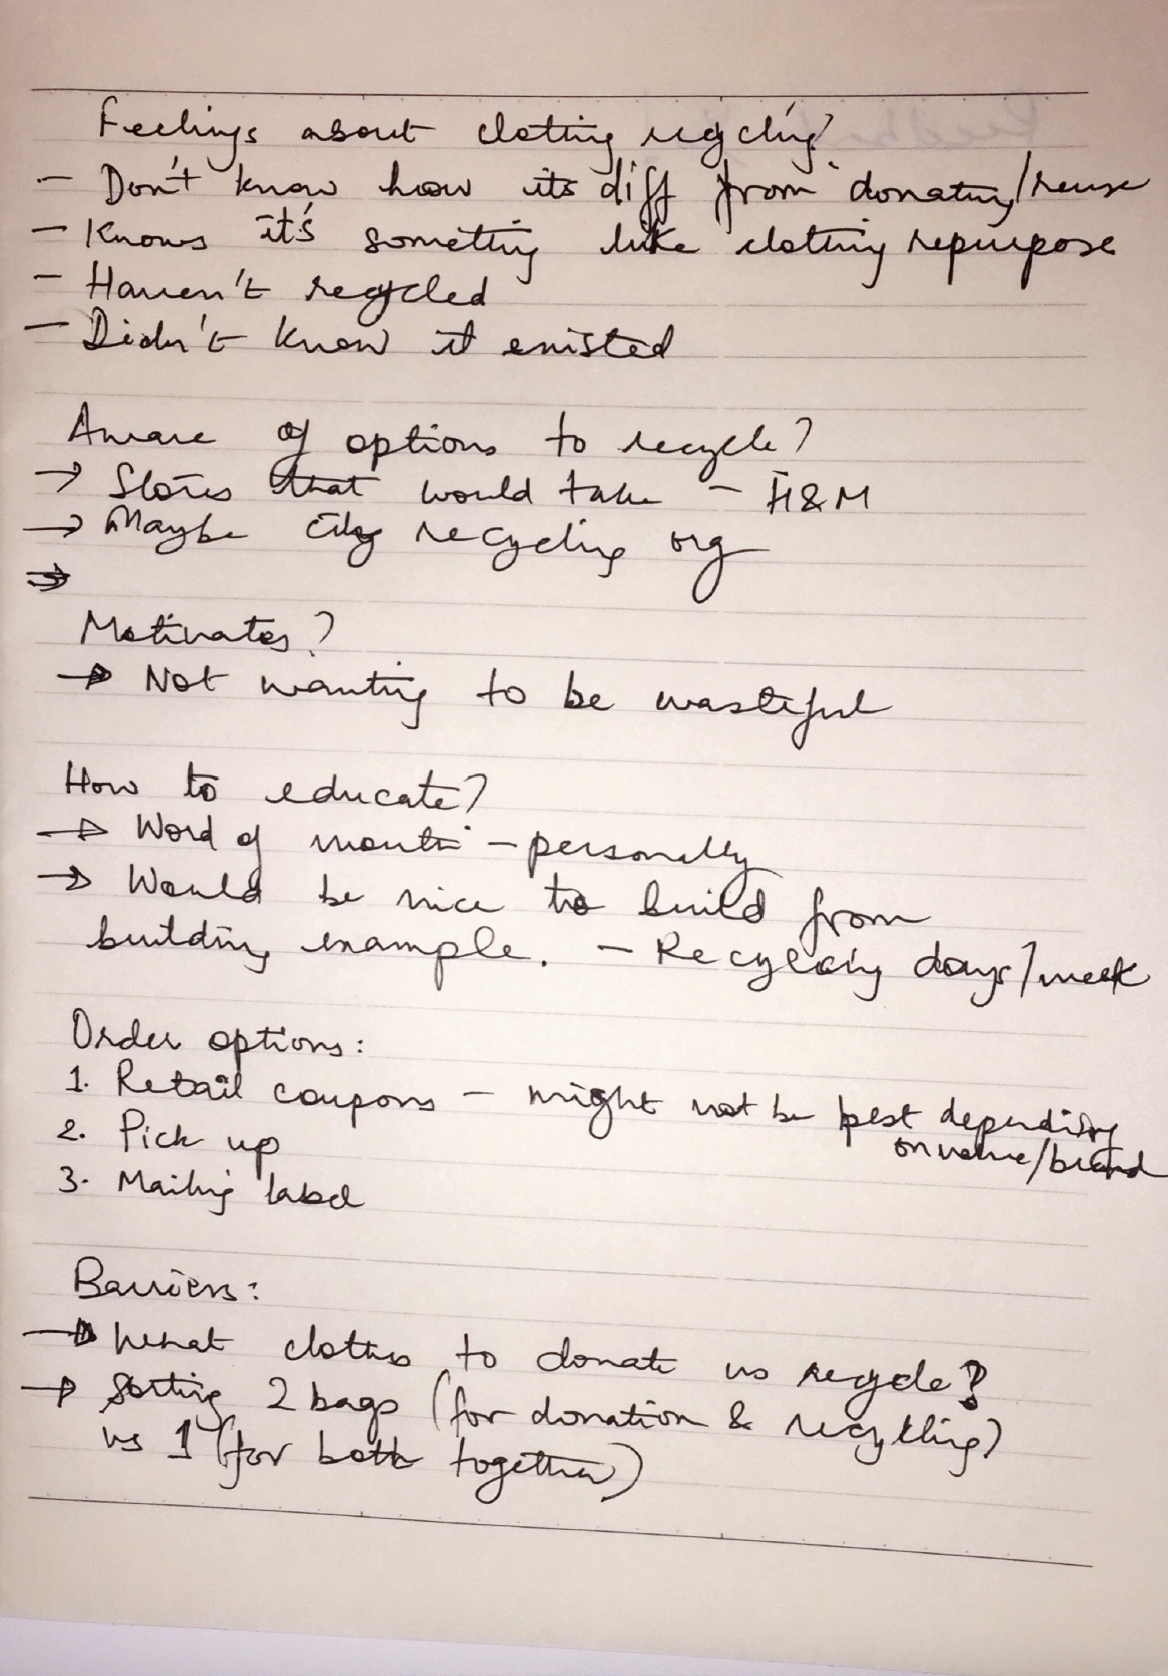 Feelings about clothing recycling?
- Don't know how its diff from donating/reuse
- Knows it's something like clothing repurpose
- Haven't recycled
- Didn't know it existed
Aware of options to recycle?
→ Stores that would take - H&M
→ Maybe city recycling org
⇒
Motivates?
→ Not wanting to be wasteful
How to educate?
→ Word of mouth - personally
→ Would be nice to build from
building example. - Recycling days/week
Order options:
1. Retail coupons - might not be best depending
on value/brand
2. Pick up
3. Mailing label
Barriers:
→ What clothes to donate vs recycle?
→ Sorting 2 bags (for donation & recycling)
vs 1 (for both together)